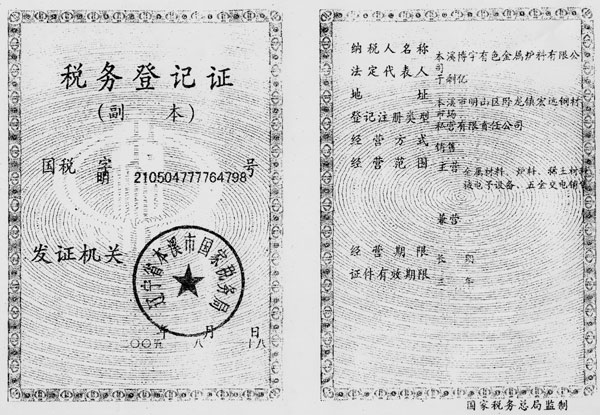 税务登记证
(副 本)
国税 字 号
明 210504777764798
发证机关
辽宁省本溪市国家税务局
年 月 日
二〇〇五 八 十八
纳税人名称 本溪博宇有色金属炉料有限公
司
法定代表人
地 址 本溪市明山区卧龙镇宏远钢材
市场
登记注册类型 私营有限责任公司
经营方式 销售
经营范围 主营 金属材料、炉料、稀土材料
械电子设备、五金交电销售
兼营
经营期限 长 期
证件有效期限 三 年
国家税务总局监制